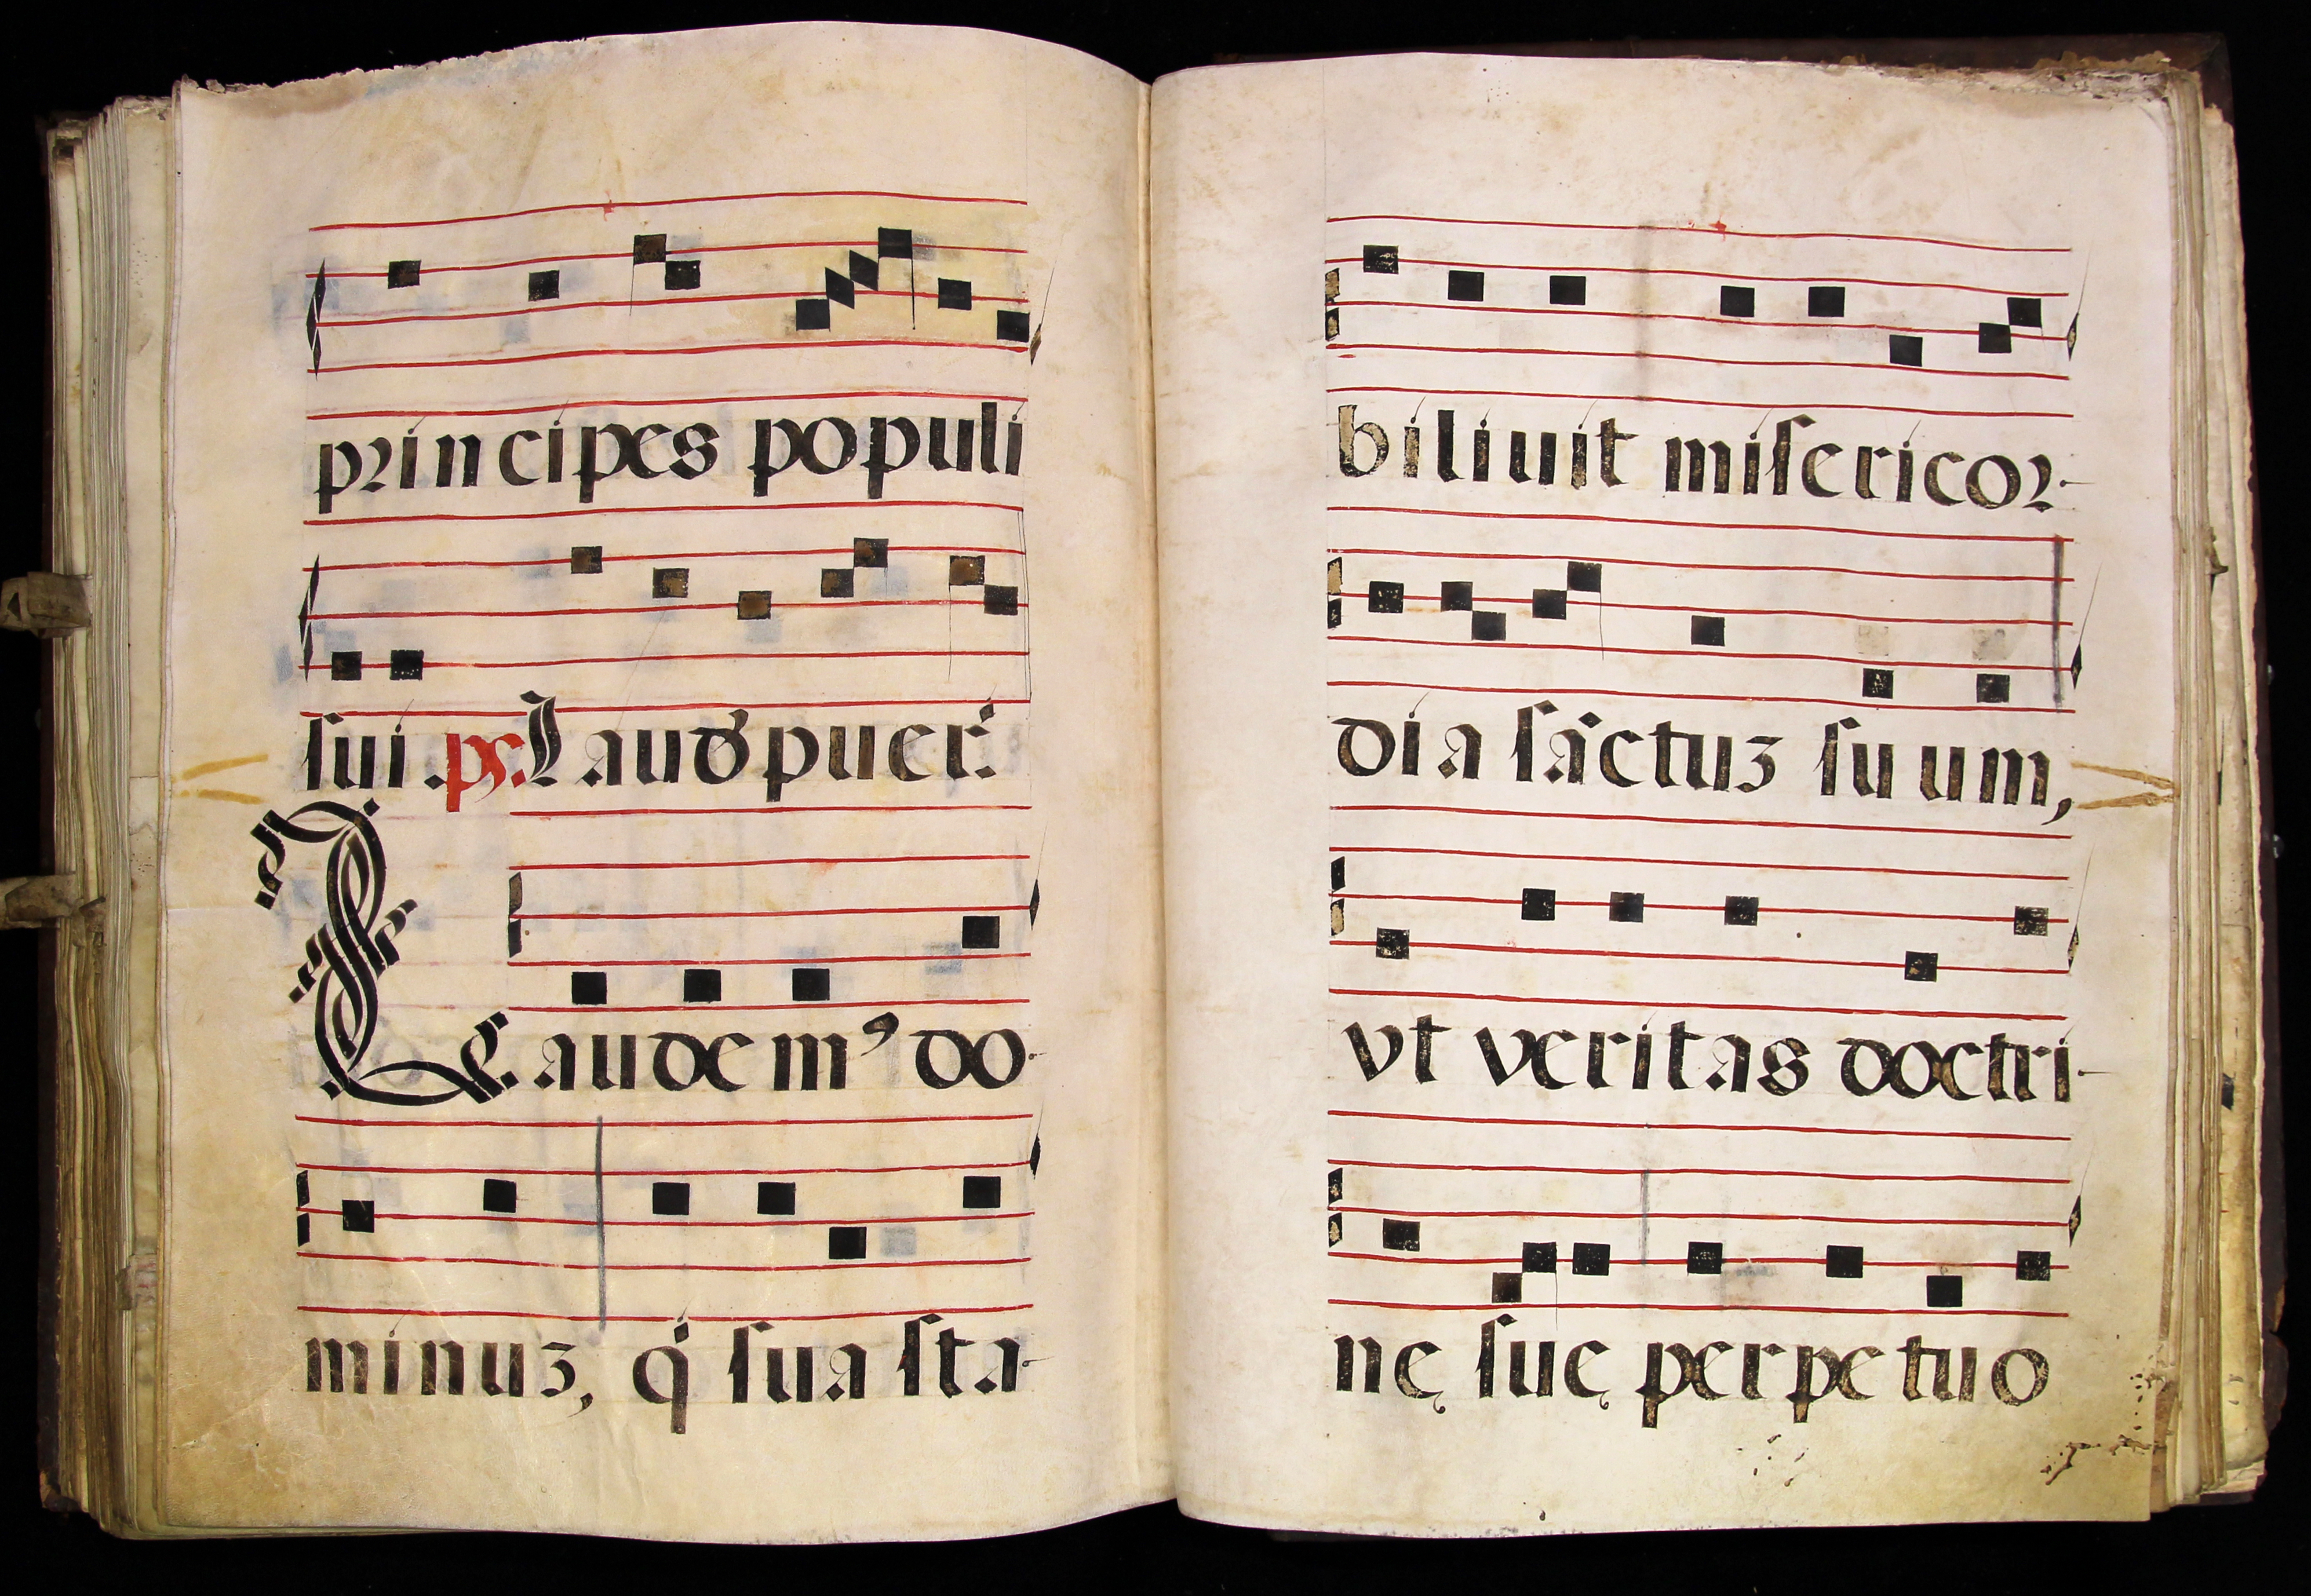 principes populi
sui .ps. Laudꝭ puer.
Laudem⁹ do-
minuz, q̇ sua sta-
biliuit misericor-
dia sāctuz suum,
vt veritas doctri-
nę suę perpetuo